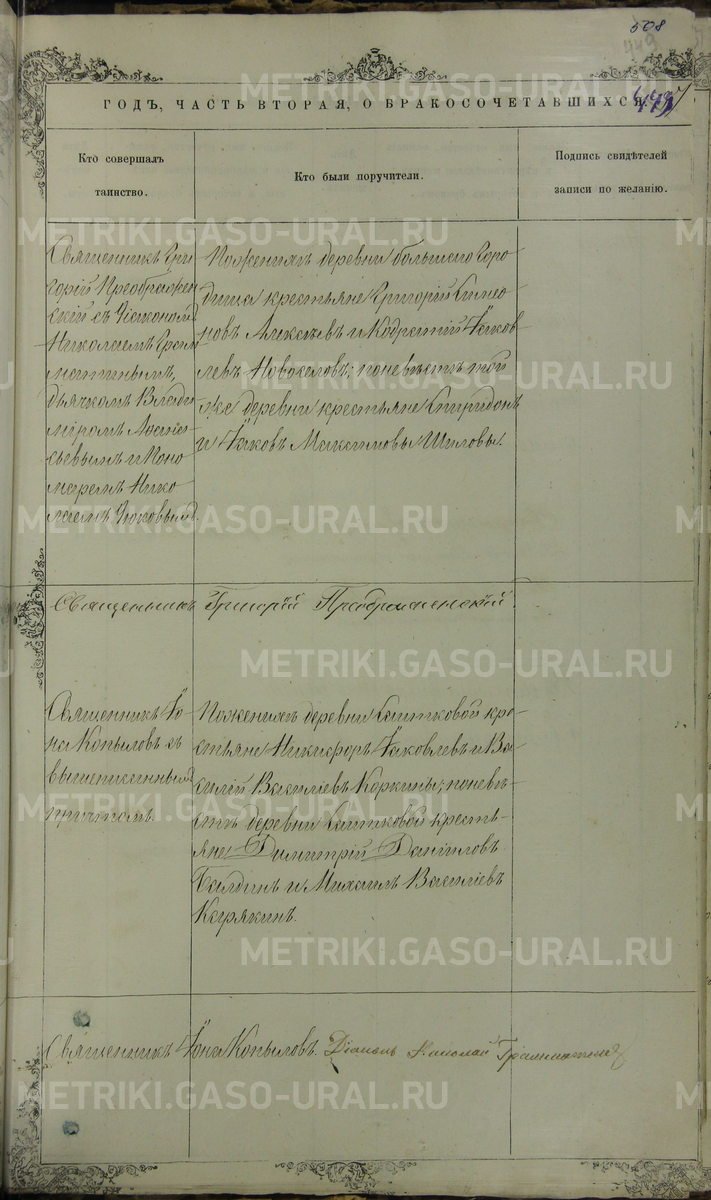 508
449
ГОДЪ, ЧАСТЬ ВТОРАЯ, О БРАКОСОЧЕТАВШИХСЯ.
Кто совершалъ
таинство.
Кто были поручители.
Подпись свидѣтелей
записи по желанію.
Священникъ Гри
горій Преображен
скій съ Діакономъ
Николаемъ
дьячкомъ Влади
міромъ
и Поно
маремъ Нико
лаемъ
По женихѣ деревни Большаго Горо
дища крестьяне Григорій Симео
новъ и Кодратій Іаков
левъ Новоселовъ; по невѣстѣ той
же деревни крестьяне Спиридонъ
и Іаковъ Максимовы Шиловы.
Священникъ Григорій Преображенскій.
Священникъ Іо
на Копыловъ съ
вышеписаннымъ
причтомъ.
По женихѣ деревни кре
стьяне Никифоръ Іаковлевъ и Ва
силій Василіевъ Коркины; по невѣ
стѣ деревни кресть
яне Димитрій Даніиловъ
Балдинъ и Михаилъ Василіевъ
Карякинъ.
Священникъ Іона Копыловъ. Діаконъ Николай
METRIKI.GASO-URAL.RU